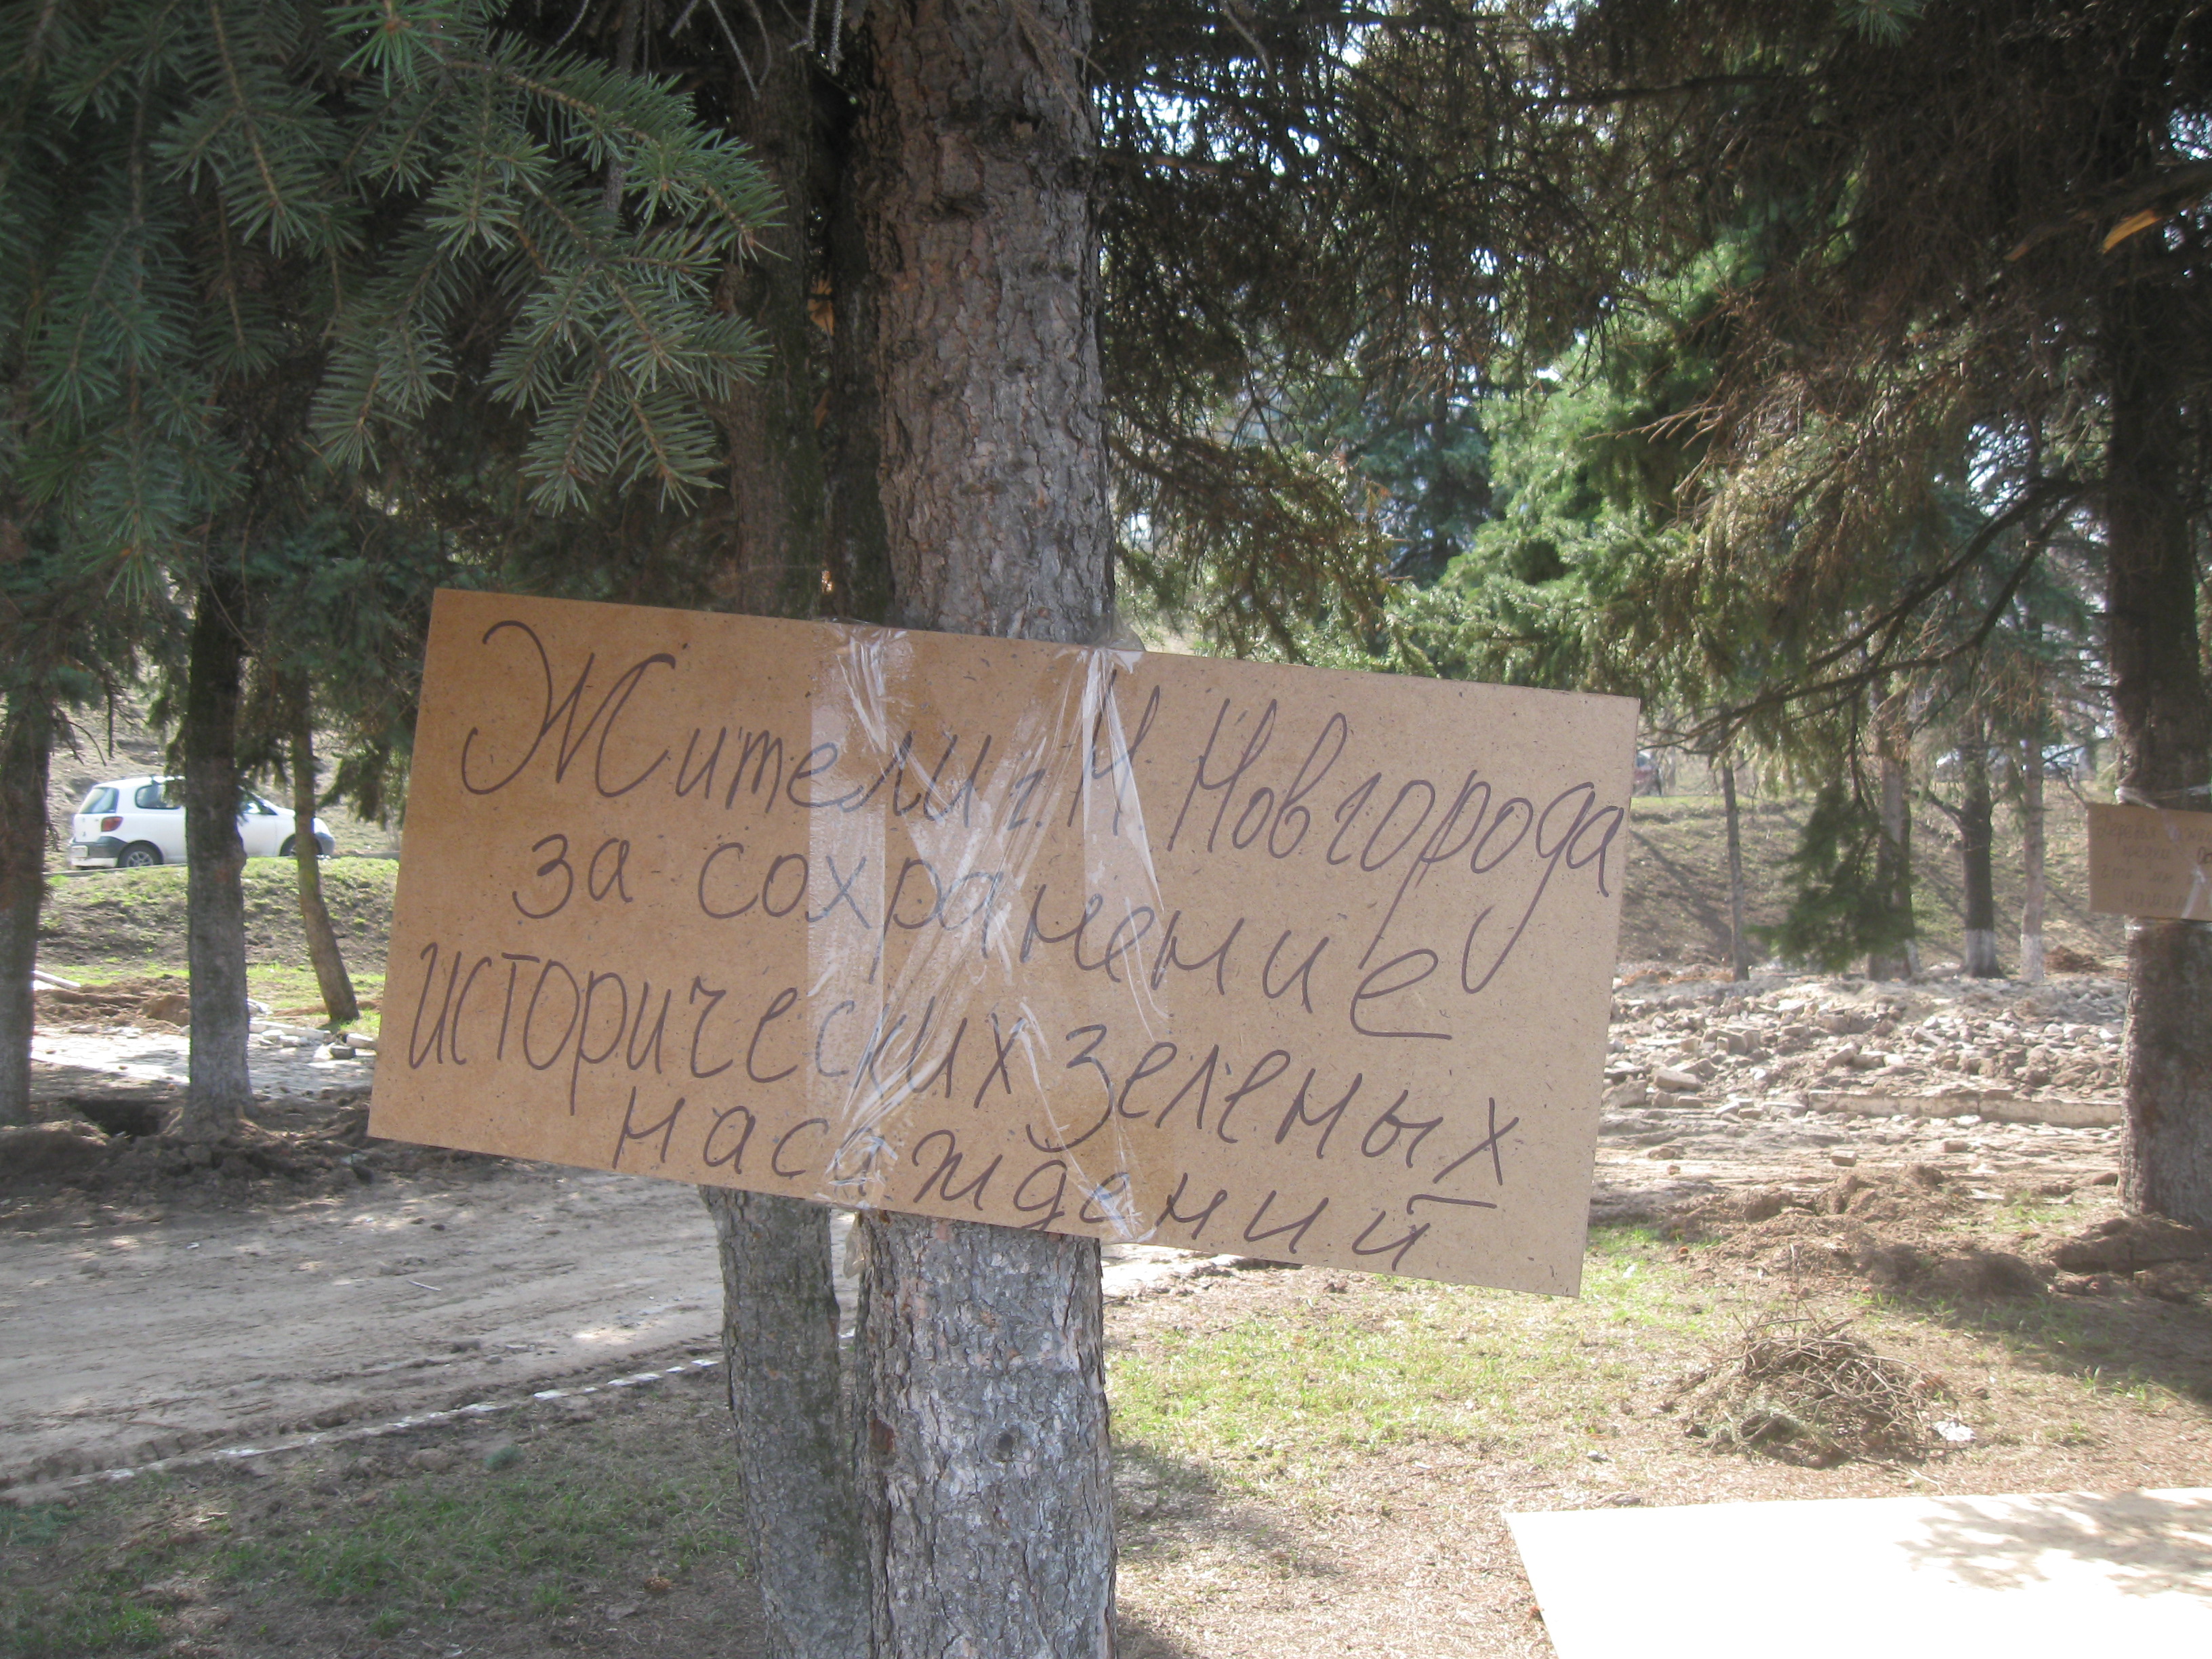 Жители г. Н. Новгорода
за сохранение
исторических зеленых
насаждений